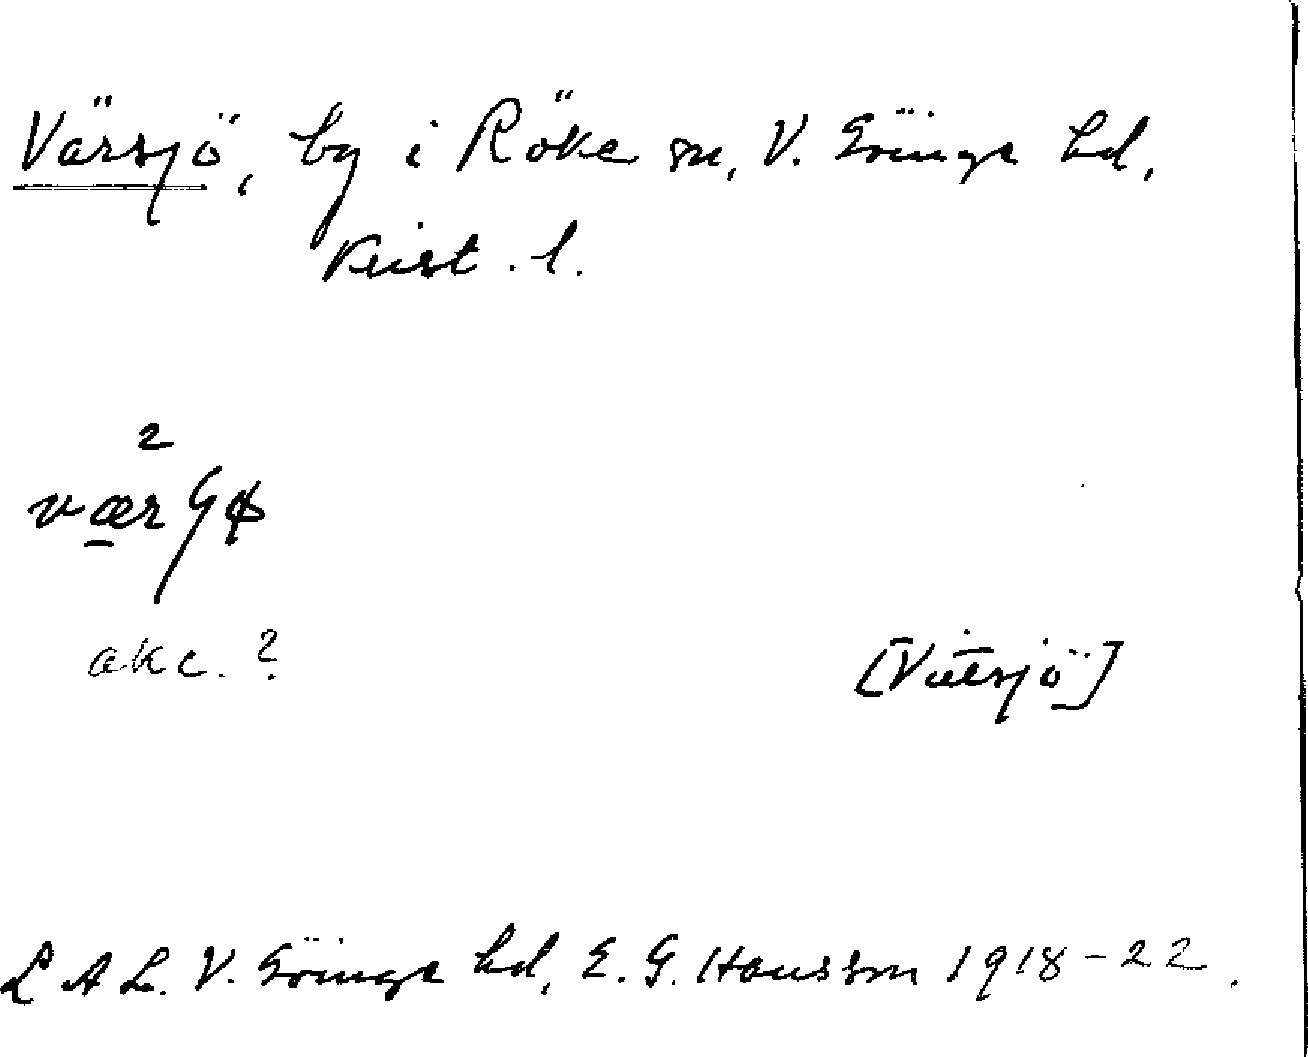 Värsjö, by i Röke sn, V. Göinge hd,
Krist. l.
2
værʃø
akc. ?
[Vitsjö]
L A L. V. Göinge hd, E. G. Hansson 1918-22.